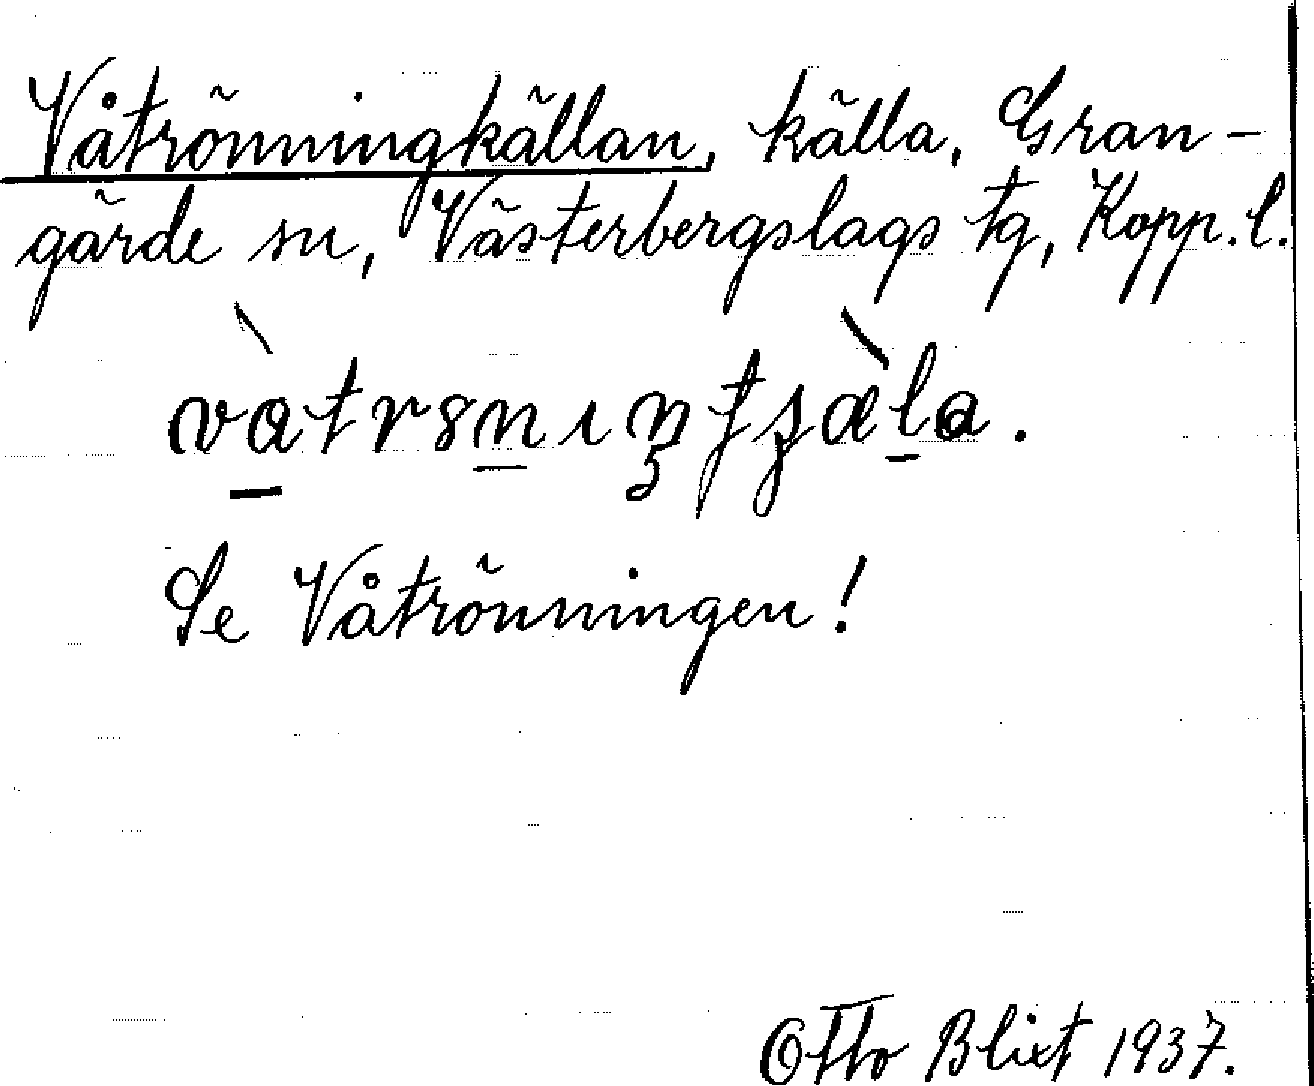 Våtrönningkällan, källa, Gran-
gärde sn, Västerbergslags tg, Kopp. l.
Se Våtrönningen!
Otto Blixt 1937.